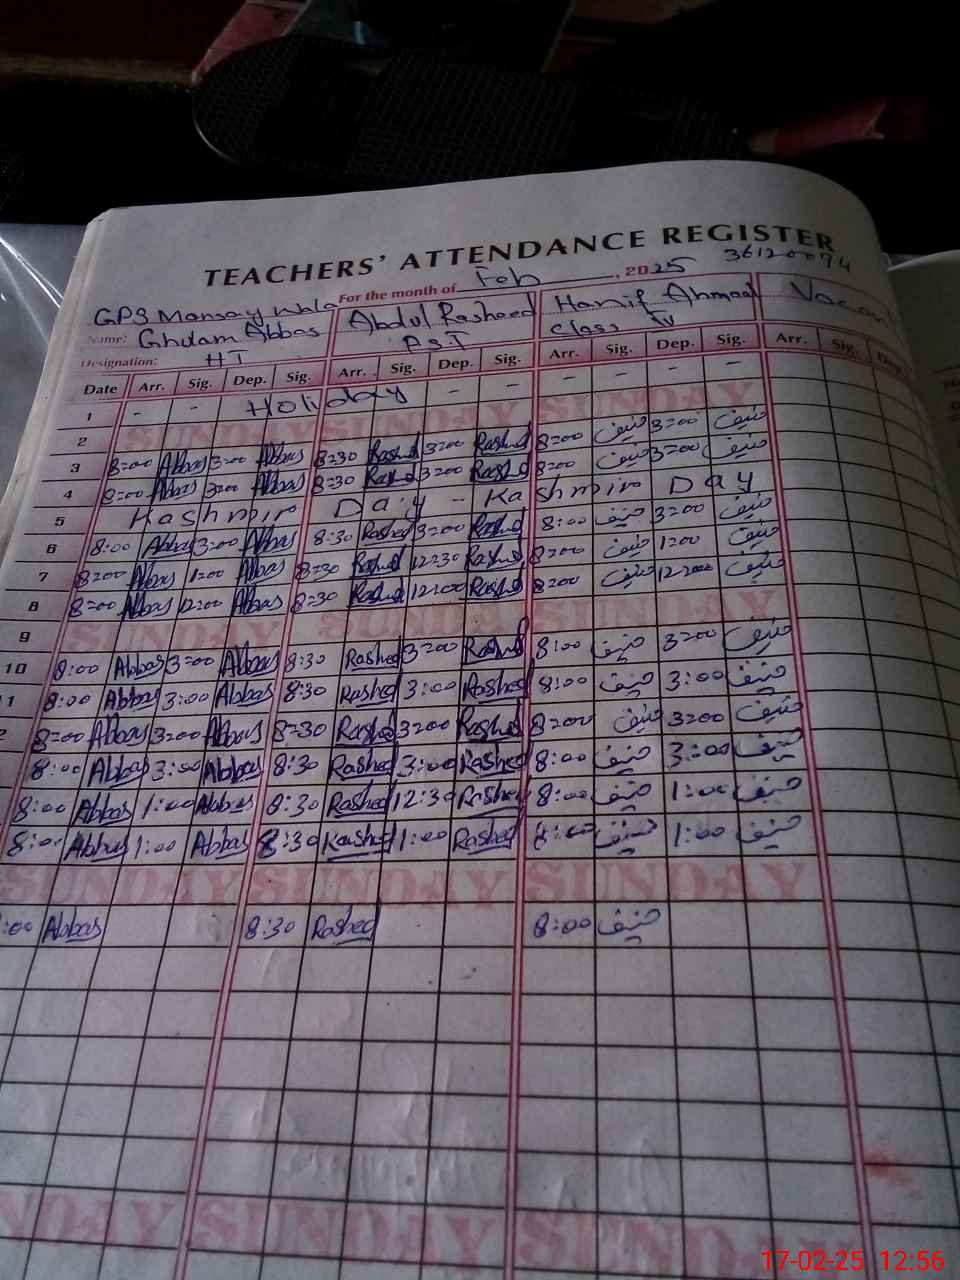 TEACHERS' ATTENDANCE REGISTER
For the month of Feb, 2025 36120074
GPS Mansay Wala
Name: Ghulam Abbas Abdul Rasheed Hanif Ahmad
Designation: HT P.S.T Class IV
Date Arr. Sig. Dep. Sig. Arr. Sig. Dep. Sig. Arr. Sig. Dep. Sig. Arr. Sig.
1 - - Holiday - - - - - -
2 SUNDAY SUNDAY SUNDAY
3 8:00 Abbas 3:00 Abbas 8:30 Rashed 3:00 Rashed 8:00 حنیف 3:00 حنیف
4 8:00 Abbas 3:00 Abbas 8:30 Rashed 3:00 Rashed 8:00 حنیف 3:00 حنیف
5 Kashmir Day - Kashmir Day
6 8:00 Abbas 3:00 Abbas 8:30 Rashed 3:00 Rashed 8:00 حنیف 3:00 حنیف
7 8:00 Abbas 1:00 Abbas 8:30 Rashed 12:30 Rashed 8:00 حنیف 1:00 حنیف
8 8:00 Abbas 12:00 Abbas 8:30 Rashed 12:00 Rashed 8:00 حنیف 12:00 حنیف
9 SUNDAY SUNDAY SUNDAY
10 8:00 Abbas 3:00 Abbas 8:30 Rashed 3:00 Rashed 8:00 حنیف 3:00 حنیف
1 8:00 Abbas 3:00 Abbas 8:30 Rashed 3:00 Rashed 8:00 حنیف 3:00 حنیف
2 8:00 Abbas 3:00 Abbas 8:30 Rashed 3:00 Rashed 8:00 حنیف 3:00 حنیف
8:00 Abbas 3:00 Abbas 8:30 Rashed 3:00 Rashed 8:00 حنیف 3:00 حنیف
8:00 Abbas 1:00 Abbas 8:30 Rashed 12:30 Rashed 8:00 حنیف 1:00 حنیف
8:00 Abbas 1:00 Abbas 8:30 Rashed 1:00 Rashed 8:00 حنیف 1:00 حنیف
SUNDAY SUNDAY SUNDAY
:00 Abbas 8:30 Rashed 8:00 حنیف
NDAY SUNDAY SUNDAY
17-02-25 12:56